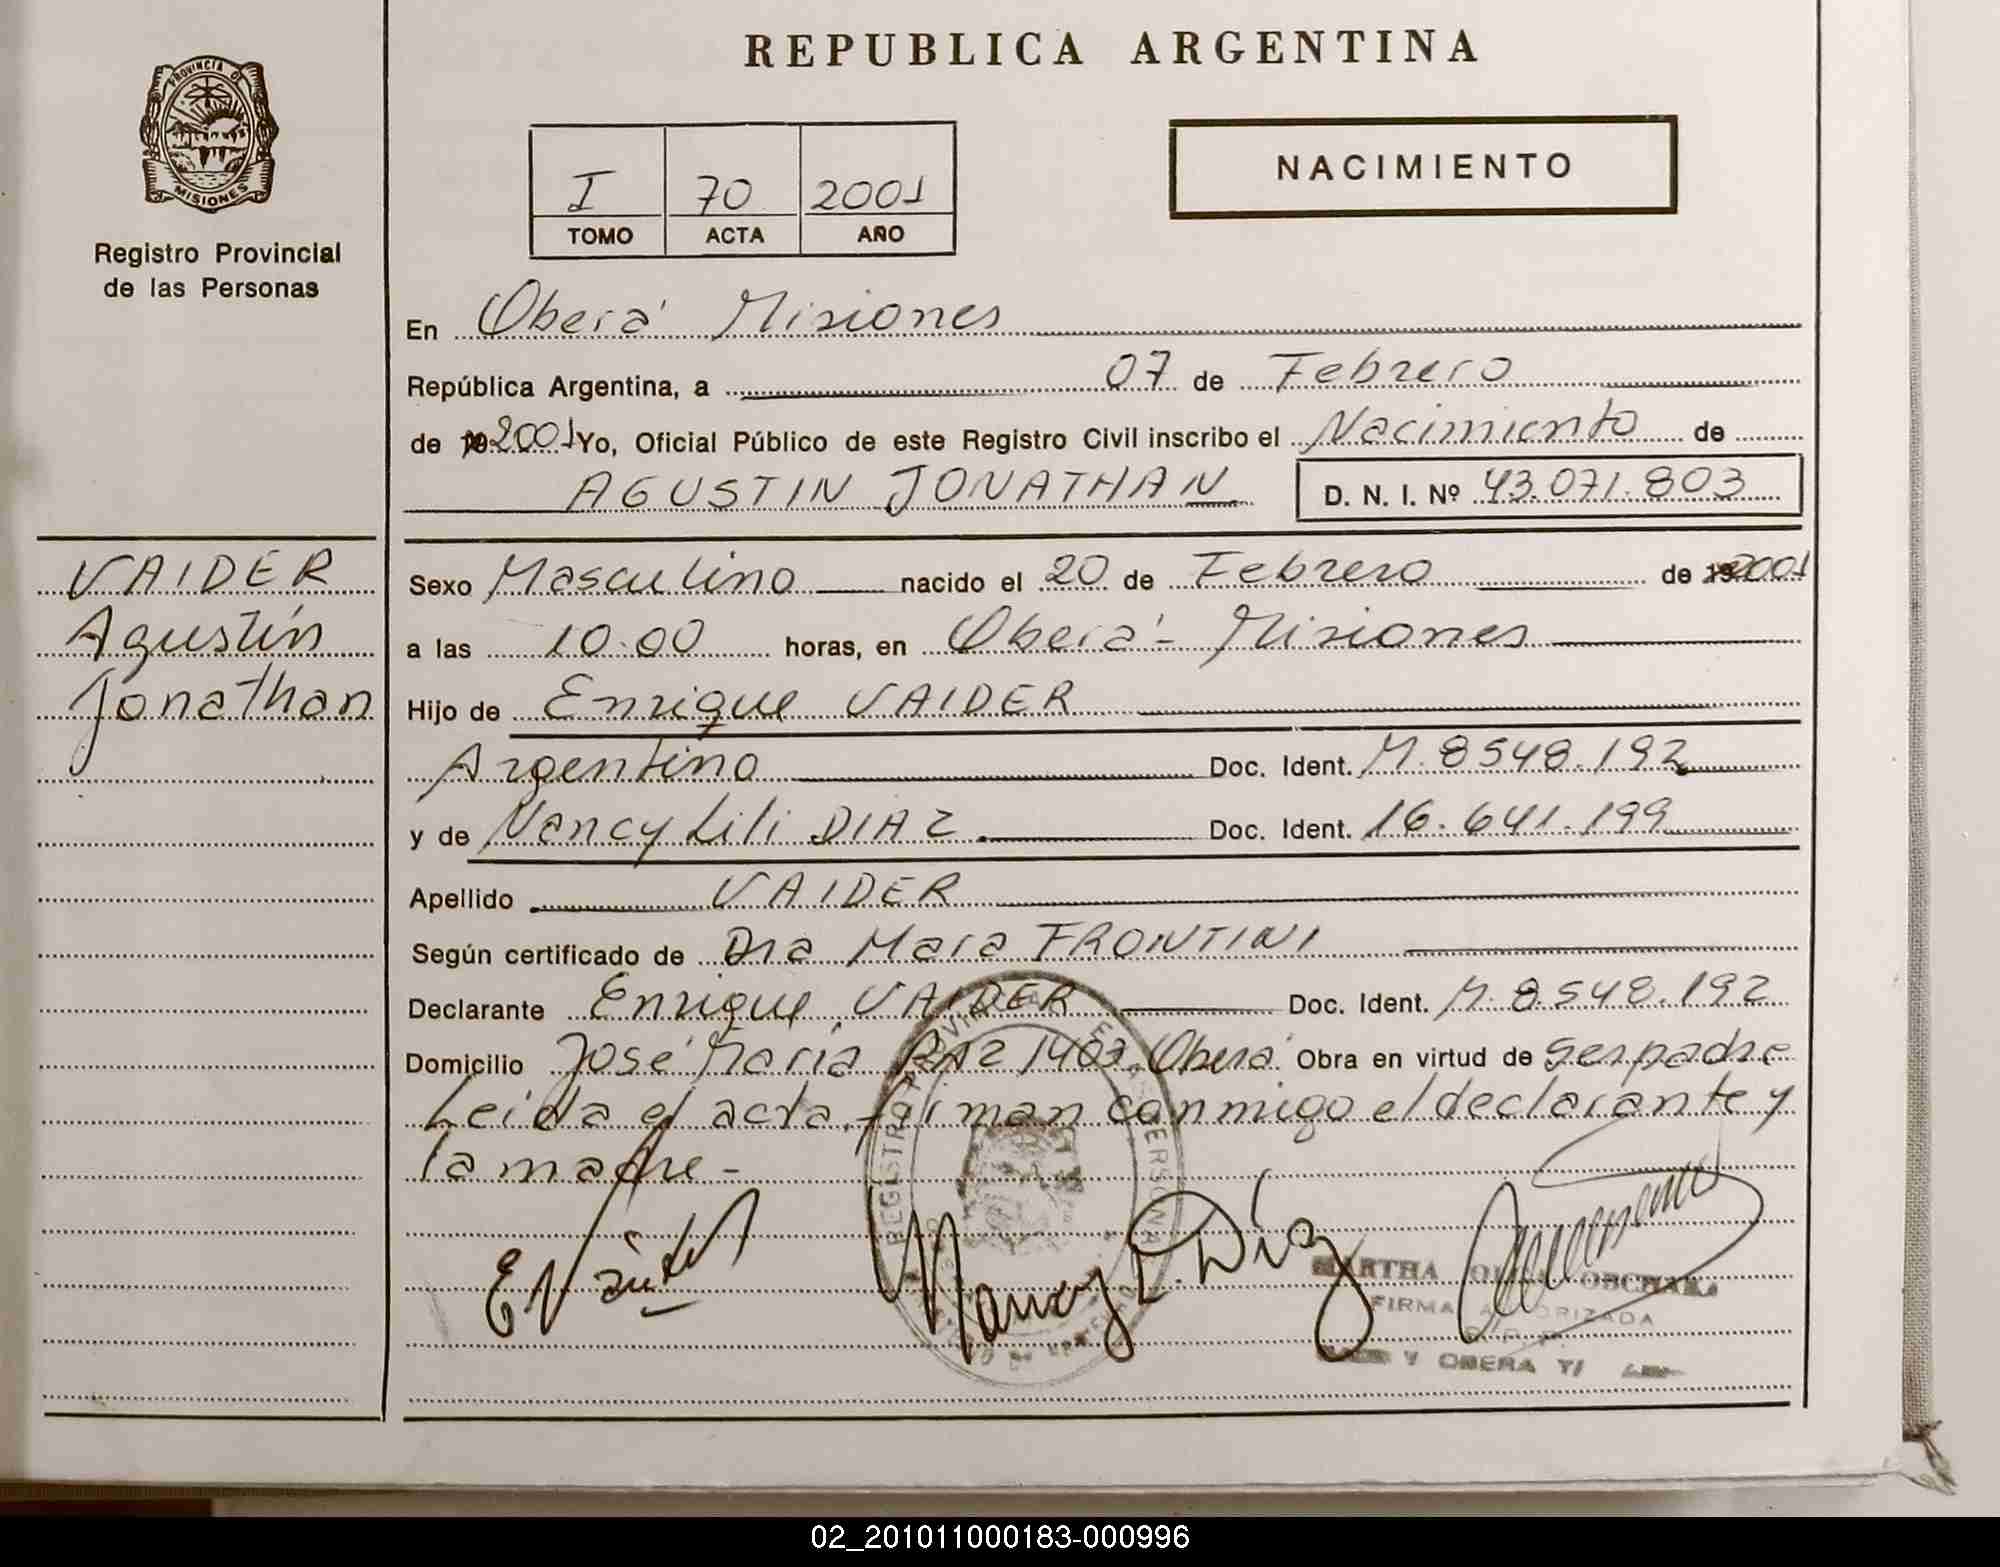 REPUBLICA ARGENTINA
PROVINCIA DE
MISIONES
Registro Provincial
de las Personas
I 70 2001
TOMO ACTA AÑO
NACIMIENTO
En Oberá Misiones
República Argentina, a 07 de Febrero
de 19 2001 Yo, Oficial Público de este Registro Civil inscribo el Nacimiento de
AGUSTIN JONATHAN D. N. I. Nº 43.071.803
VAIDER
Agustín
Jonathan
Sexo Masculino nacido el 20 de Febrero de 19 2001
a las 10.00 horas, en Oberá - Misiones
Hijo de Enrique VAIDER
Argentino Doc. Ident. M. 8548.192
y de Nancy Lili DIAZ. Doc. Ident. 16.641.199
Apellido VAIDER
Según certificado de Dra Mara FRONTINI
Declarante Enrique VAIDER Doc. Ident. M. 8.548.192
Domicilio José María PAZ Oberá Obra en virtud de ser padre
Leída el acta, firman conmigo el declarante y
la madre -
Nancy L. Díaz
MARTHA OLGA
FIRMA AUTORIZADA
Y OBERA
02_201011000183-000996